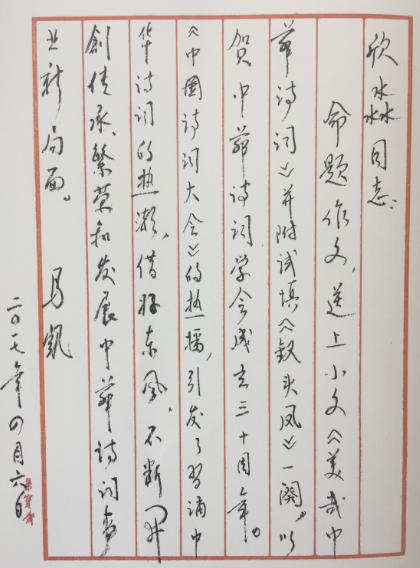 欣淼同志：
命题作文，送上小文《美哉中
華诗词》并附试填《钗头凤》一阕，以
贺中華诗词学会成立三十周年。
《中國诗词大会》的热播，引发了习诵中
华诗词的热潮，借好东风，不断开
創传承、繁荣和发展中華诗词事
业新局面。 马凯
二〇一七年四月六日
荣宝斋